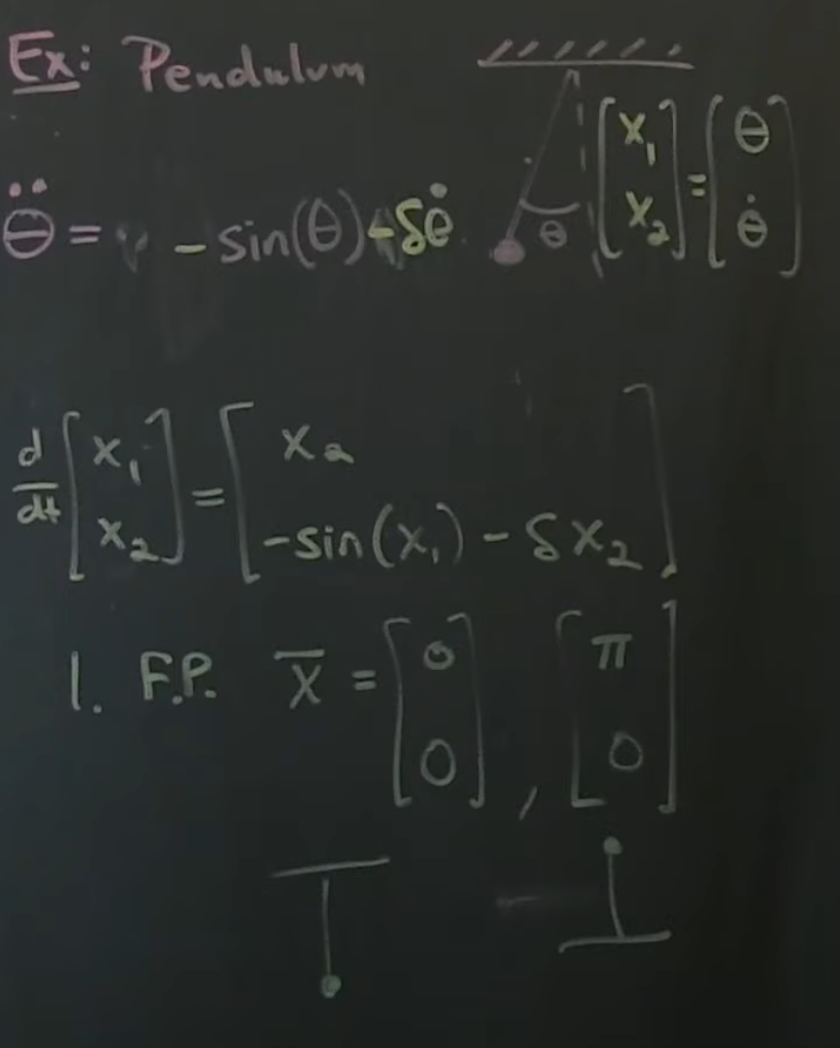 Ex: Pendulum
θ̈ = - sin(θ) - δθ̇
θ
[x₁ x₂] = [θ θ̇]
d/dt [x₁ x₂] = [x₂ -sin(x₁) - δx₂]
1. F.P. x̄ = [0 0], [π 0]